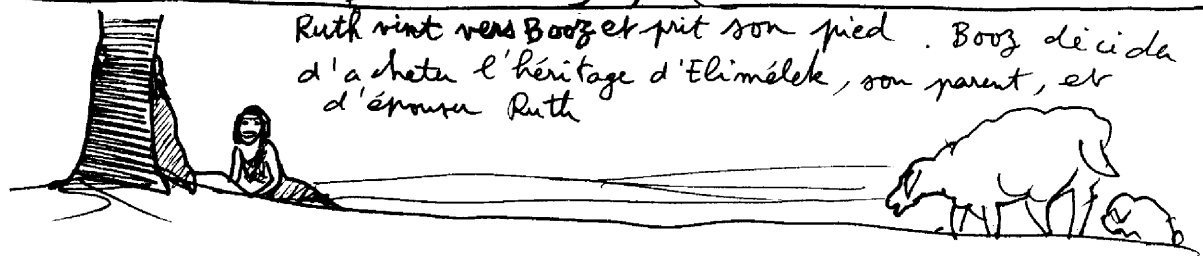 Ruth vint vers Booz et prit son pied. Booz décida
d'acheter l'héritage d'Elimélek, son parent, et
d'épouser Ruth